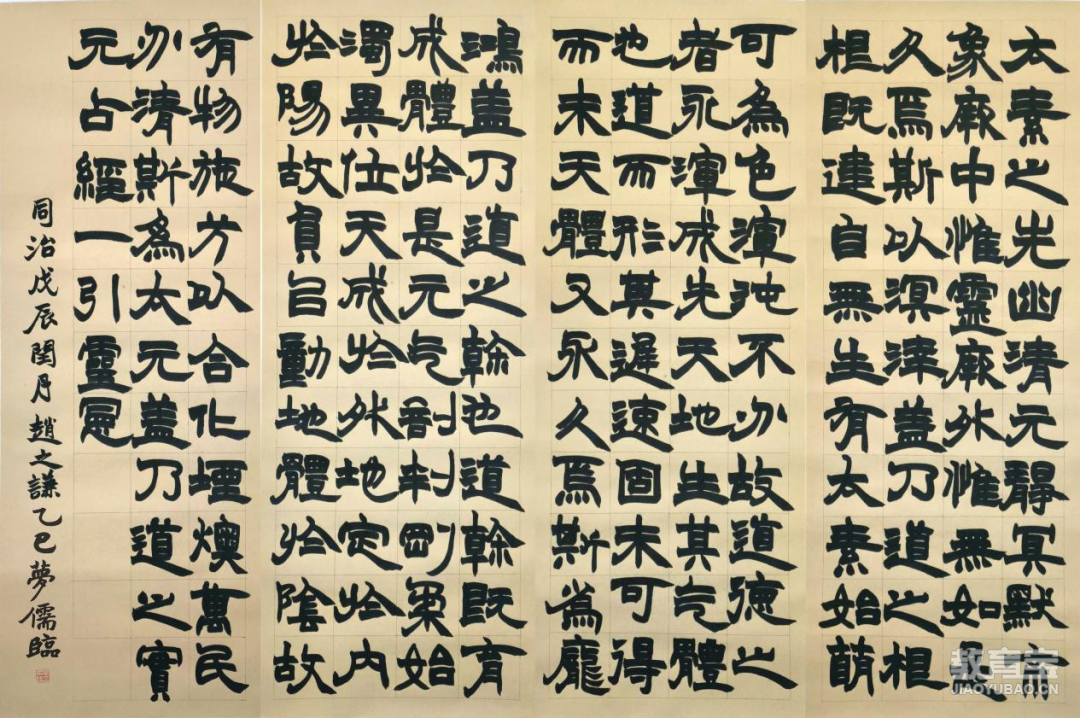 太素之先幽清元靜冥默而
象厥中惟靈厥外惟無如是
久焉斯以溟涬盖乃道之根
根既建自無生有太素始萌
可為色渾沌不分故道德之
者永渾成先天地生其气體
也道而形其遲速固未可得
而未天體又永久焉斯為龐
鴻盖乃道之幹也道幹既育
成體於是元气剖判剛柔始
濁異位天成於外地定於內
於陽故員以動地體於陰故
有物施方以合化堙燠萬民
分清斯為太元盖乃道之實
元占經一引靈憲
同治戊辰閏月趙之謙乙巳夢儒臨
教育宝
JIAOYUBAO.CN